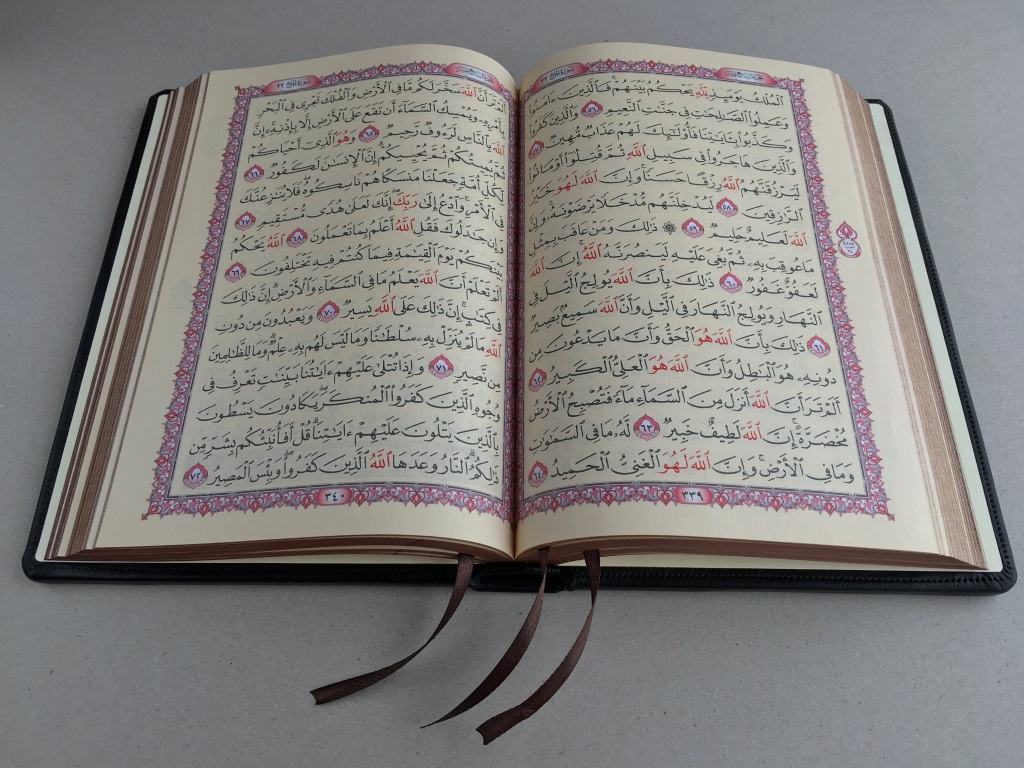 الجزء السابع عشر
سورة الحج ٢٢
ٱلْمُلْكُ يَوْمَئِذٍ لِّلَّهِ يَحْكُمُ بَيْنَهُمْ ۚ فَٱلَّذِينَ ءَامَنُوا۟
وَعَمِلُوا۟ ٱلصَّـٰلِحَـٰتِ فِى جَنَّـٰتِ ٱلنَّعِيمِ ٥٦ وَٱلَّذِينَ كَفَرُوا۟
وَكَذَّبُوا۟ بِـَٔايَـٰتِنَا فَأُو۟لَـٰٓئِكَ لَهُمْ عَذَابٌ مُّهِينٌ ٥٧
وَٱلَّذِينَ هَاجَرُوا۟ فِى سَبِيلِ ٱللَّهِ ثُمَّ قُتِلُوٓا۟ أَوْ مَاتُوا۟
لَيَرْزُقَنَّهُمُ ٱللَّهُ رِزْقًا حَسَنًا ۚ وَإِنَّ ٱللَّهَ لَهُوَ خَيْرُ
ٱلرَّٰزِقِينَ ٥٨ لَيُدْخِلَنَّهُم مُّدْخَلًا يَرْضَوْنَهُۥ ۗ وَإِنَّ
ٱللَّهَ لَعَلِيمٌ حَلِيمٌ ٥٩ ۞ ذَٰلِكَ وَمَنْ عَاقَبَ بِمِثْلِ
مَا عُوقِبَ بِهِۦ ثُمَّ بُغِىَ عَلَيْهِ لَيَنصُرَنَّهُ ٱللَّهُ ۗ إِنَّ ٱللَّهَ
لَعَفُوٌّ غَفُورٌ ٦٠ ذَٰلِكَ بِأَنَّ ٱللَّهَ يُولِجُ ٱلَّيْلَ فِى
ٱلنَّهَارِ وَيُولِجُ ٱلنَّهَارَ فِى ٱلَّيْلِ وَأَنَّ ٱللَّهَ سَمِيعٌۢ بَصِيرٌ
٦١ ذَٰلِكَ بِأَنَّ ٱللَّهَ هُوَ ٱلْحَقُّ وَأَنَّ مَا يَدْعُونَ مِن
دُونِهِۦ هُوَ ٱلْبَـٰطِلُ وَأَنَّ ٱللَّهَ هُوَ ٱلْعَلِىُّ ٱلْكَبِيرُ ٦٢
أَلَمْ تَرَ أَنَّ ٱللَّهَ أَنزَلَ مِنَ ٱلسَّمَآءِ مَآءً فَتُصْبِحُ ٱلْأَرْضُ
مُخْضَرَّةً ۗ إِنَّ ٱللَّهَ لَطِيفٌ خَبِيرٌ ٦٣ لَّهُۥ مَا فِى ٱلسَّمَـٰوَٰتِ
وَمَا فِى ٱلْأَرْضِ ۗ وَإِنَّ ٱللَّهَ لَهُوَ ٱلْغَنِىُّ ٱلْحَمِيدُ ٦٤
٣٣٩
الجزء السابع عشر
سورة الحج ٢٢
أَلَمْ تَرَ أَنَّ ٱللَّهَ سَخَّرَ لَكُم مَّا فِى ٱلْأَرْضِ وَٱلْفُلْكَ تَجْرِى فِى ٱلْبَحْرِ
بِأَمْرِهِۦ وَيُمْسِكُ ٱلسَّمَآءَ أَن تَقَعَ عَلَى ٱلْأَرْضِ إِلَّا بِإِذْنِهِۦٓ ۗ إِنَّ
ٱللَّهَ بِٱلنَّاسِ لَرَءُوفٌ رَّحِيمٌ ٦٥ وَهُوَ ٱلَّذِىٓ أَحْيَاكُمْ
ثُمَّ يُمِيتُكُمْ ثُمَّ يُحْيِيكُمْ ۗ إِنَّ ٱلْإِنسَـٰنَ لَكَفُورٌ ٦٦
لِّكُلِّ أُمَّةٍ جَعَلْنَا مَنسَكًا هُمْ نَاسِكُوهُ ۖ فَلَا يُنَـٰزِعُنَّكَ
فِى ٱلْأَمْرِ ۚ وَٱدْعُ إِلَىٰ رَبِّكَ ۖ إِنَّكَ لَعَلَىٰ هُدًى مُّسْتَقِيمٍ ٦٧
وَإِن جَـٰدَلُوكَ فَقُلِ ٱللَّهُ أَعْلَمُ بِمَا تَعْمَلُونَ ٦٨ ٱللَّهُ يَحْكُمُ
بَيْنَكُمْ يَوْمَ ٱلْقِيَـٰمَةِ فِيمَا كُنتُمْ فِيهِ تَخْتَلِفُونَ ٦٩
أَلَمْ تَعْلَمْ أَنَّ ٱللَّهَ يَعْلَمُ مَا فِى ٱلسَّمَآءِ وَٱلْأَرْضِ ۗ إِنَّ ذَٰلِكَ
فِى كِتَـٰبٍ ۚ إِنَّ ذَٰلِكَ عَلَى ٱللَّهِ يَسِيرٌ ٧٠ وَيَعْبُدُونَ مِن دُونِ
ٱللَّهِ مَا لَمْ يُنَزِّلْ بِهِۦ سُلْطَـٰنًا وَمَا لَيْسَ لَهُم بِهِۦ عِلْمٌ ۗ وَمَا لِلظَّـٰلِمِينَ
مِن نَّصِيرٍ ٧١ وَإِذَا تُتْلَىٰ عَلَيْهِمْ ءَايَـٰتُنَا بَيِّنَـٰتٍ تَعْرِفُ فِى
وُجُوهِ ٱلَّذِينَ كَفَرُوا۟ ٱلْمُنكَرَ ۖ يَكَادُونَ يَسْطُونَ
بِٱلَّذِينَ يَتْلُونَ عَلَيْهِمْ ءَايَـٰتِنَا ۗ قُلْ أَفَأُنَبِّئُكُم بِشَرٍّ مِّن
ذَٰلِكُمُ ۗ ٱلنَّارُ وَعَدَهَا ٱللَّهُ ٱلَّذِينَ كَفَرُوا۟ ۖ وَبِئْسَ ٱلْمَصِيرُ ٧٢
٣٤٠